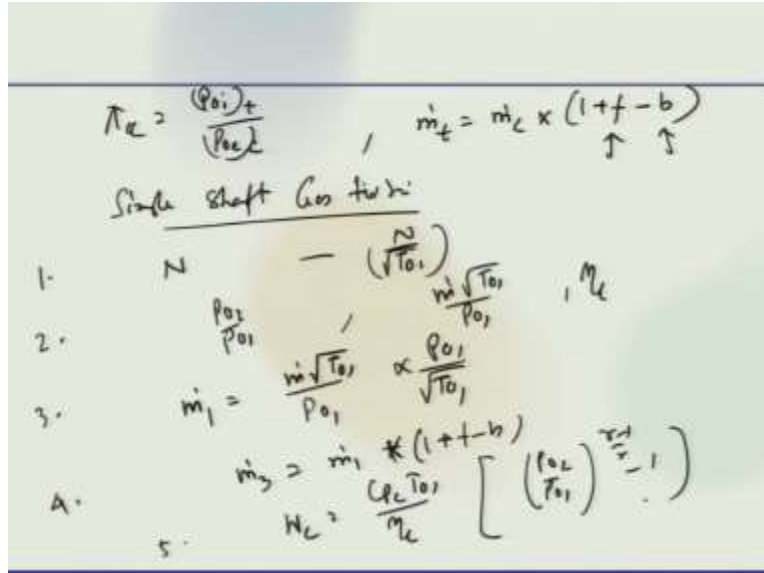 π_c = (P0i)t / (P0e)c , ṁt = ṁc × (1 + f - b)
↑ ↑
Single Shaft Gas
1. N — (N/√T01)
2. P02/P01 , ṁ√T01/P01 , ηc
3. ṁ1 = ṁ√T01/P01 × P01/√T01
4. ṁ3 = ṁ1 * (1 + f - b)
5. Wc = CpcT01/ηc [(P02/P01)^(γ-1/γ) - 1]